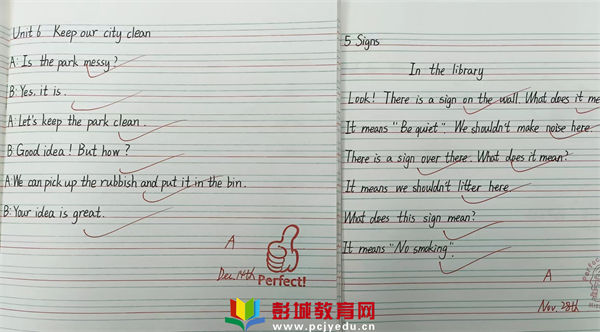 Unit 6 Keep our city clean
A: Is the park messy?
B: Yes, it is.
A: Let's keep the park clean.
B: Good idea! But how?
A: We can pick up the rubbish and put it in the bin.
B: Your idea is great.
A
Dec. 14th
Perfect!
5 Signs
In the library
Look! There is a sign on the wall. What does it me
It means "Be quiet". We shouldn't make noise here.
There is a sign over there. What does it mean?
It means we shouldn't litter here.
What does this sign mean?
It means "No smoking".
A
Nov. 28th
彭城教育网
www.pcjyedu.cn